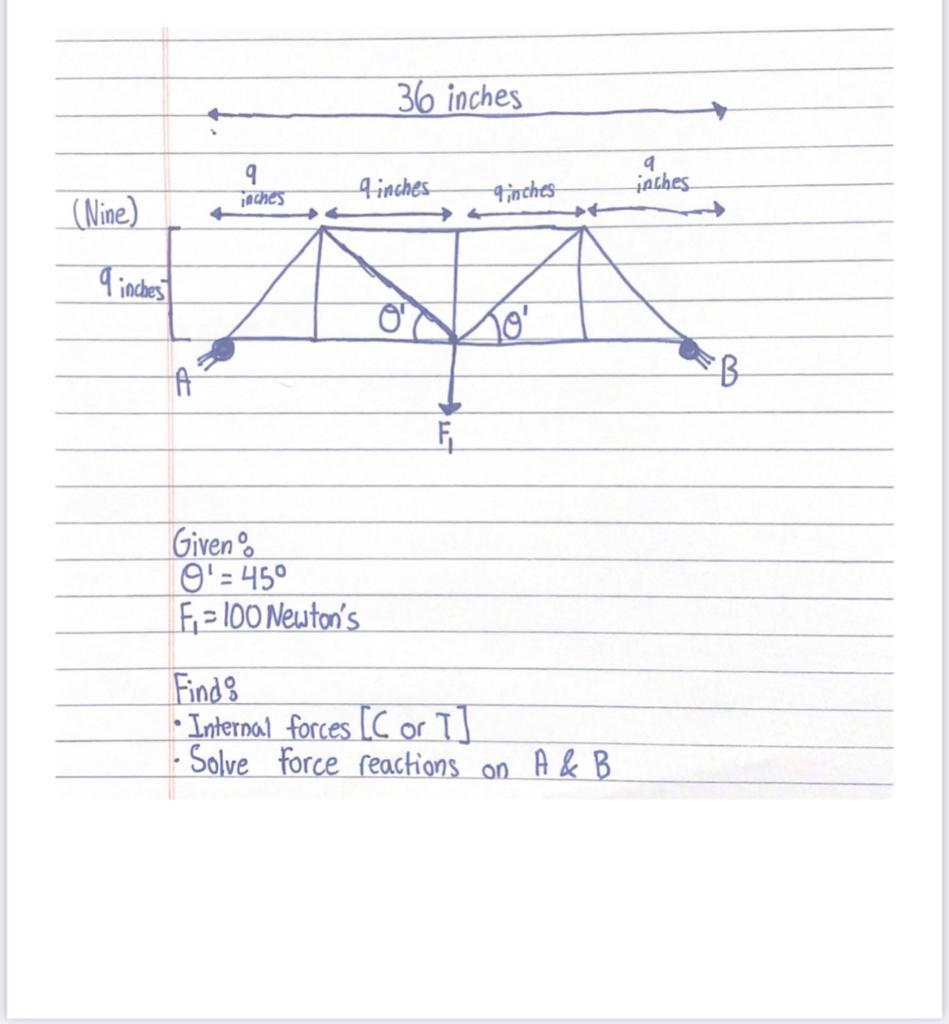 36 inches
9
inches
9 inches
9 inches
9
inches
(Nine)
9 inches
θ'
θ'
A
B
F₁
Given:
θ' = 45°
F₁ = 100 Newton's
Find:
• Internal forces [C or T]
• Solve force reactions on A & B